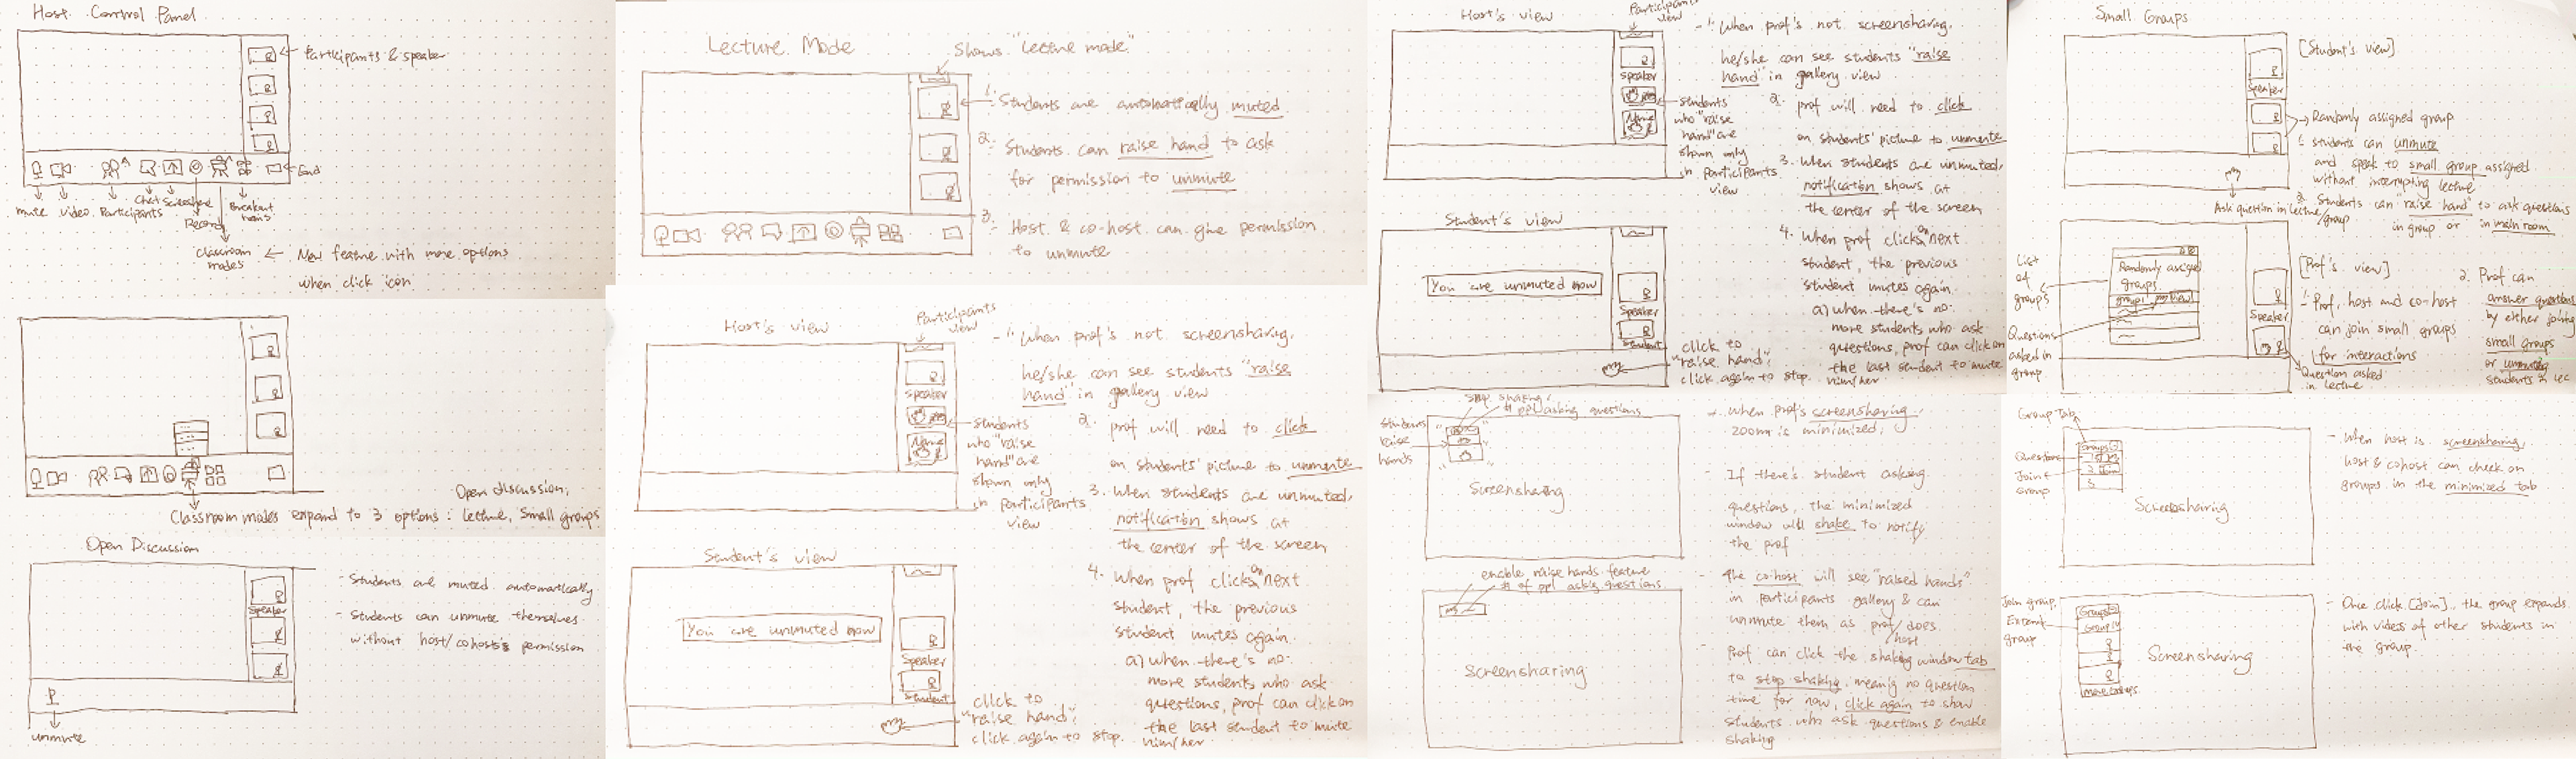 Host Control Panel
Participants & speaker
End
mute video Participants Chat Screenshare
Record
Breakout rooms
Classroom modes ← New feature with more options
when click icon
Open discussion,
Classroom modes expand to 3 options: lecture, Small groups
Open Discussion
Speaker
- Students are muted automatically
- Students can unmute themselves
without host/cohost's permission
unmute
Lecture Mode
Shows "lecture mode"
1. Students are automatically muted
2. Students can raise hand to ask
for permission to unmute
3. Host & co-host can give permission
to unmute
Host's view
Participants view
Speaker
Name
students
who "raise
hand" are
shown only
in participants
view
- 1. When prof's not screensharing,
he/she can see students "raise
hand" in gallery view
2. prof will need to click
on students' picture to unmute
3. When students are unmuted,
notification shows at
the center of the screen
4. When prof clicks on next
student, the previous
student mutes again.
a) when there's no
more students who ask
questions, prof can click on
the last student to mute
him/her
Student's view
You are unmuted now
Speaker
Student
click to
"raise hand",
click again to stop.
Host's view
Participants view
Speaker
Name
students
who "raise
hand" are
shown only
in participants
view
- 1. When prof's not screensharing,
he/she can see students "raise
hand" in gallery view
2. prof will need to click
on students' picture to unmute
3. When students are unmuted,
notification shows at
the center of the screen
4. When prof clicks on next
student, the previous
student mutes again.
a) when there's no
more students who ask
questions, prof can click on
the last student to mute
him/her
Student's view
You are unmuted now
Speaker
Student
click to
"raise hand",
click again to stop.
Stop shaking,
# ppl asking questions
Students
raise
hands
Screensharing
- When prof's screensharing,
zoom is minimized,
- If there's student asking
questions, the minimized
window will shake to notify
the prof
enable raise hands feature
# of ppl asking questions
Screensharing
- The co-host will see "raised hands"
in participants gallery & can
unmute them as prof/host does.
- Prof can click the shaking window tab
to stop shaking, meaning no question
time for now, click again to show
students who ask questions & enable
shaking
Small Groups
[Student's view]
Speaker
Randomly assigned group
1. students can unmute
and speak to small group assigned
without interrupting lecture
2. Students can "raise hand" to ask questions
in group or in main room
Ask question in lecture/group
[Prof's view]
List
of
groups
Questions
asked in
group
Randomly assigned
groups
group1
Speaker
1. Prof, host and co-host
can join small groups
for interactions
Question asked
in lecture
2. Prof can
answer questions
by either joining
small groups
or unmuting
students in lec
Group Tab
Question
Join
group
Groups
Screensharing
- When host is screensharing
host & cohost can check on
groups in the minimized tab
Join group,
group
Groups
Group
Screensharing
- Once click [Join], the group expands
with videos of other students in
the group.